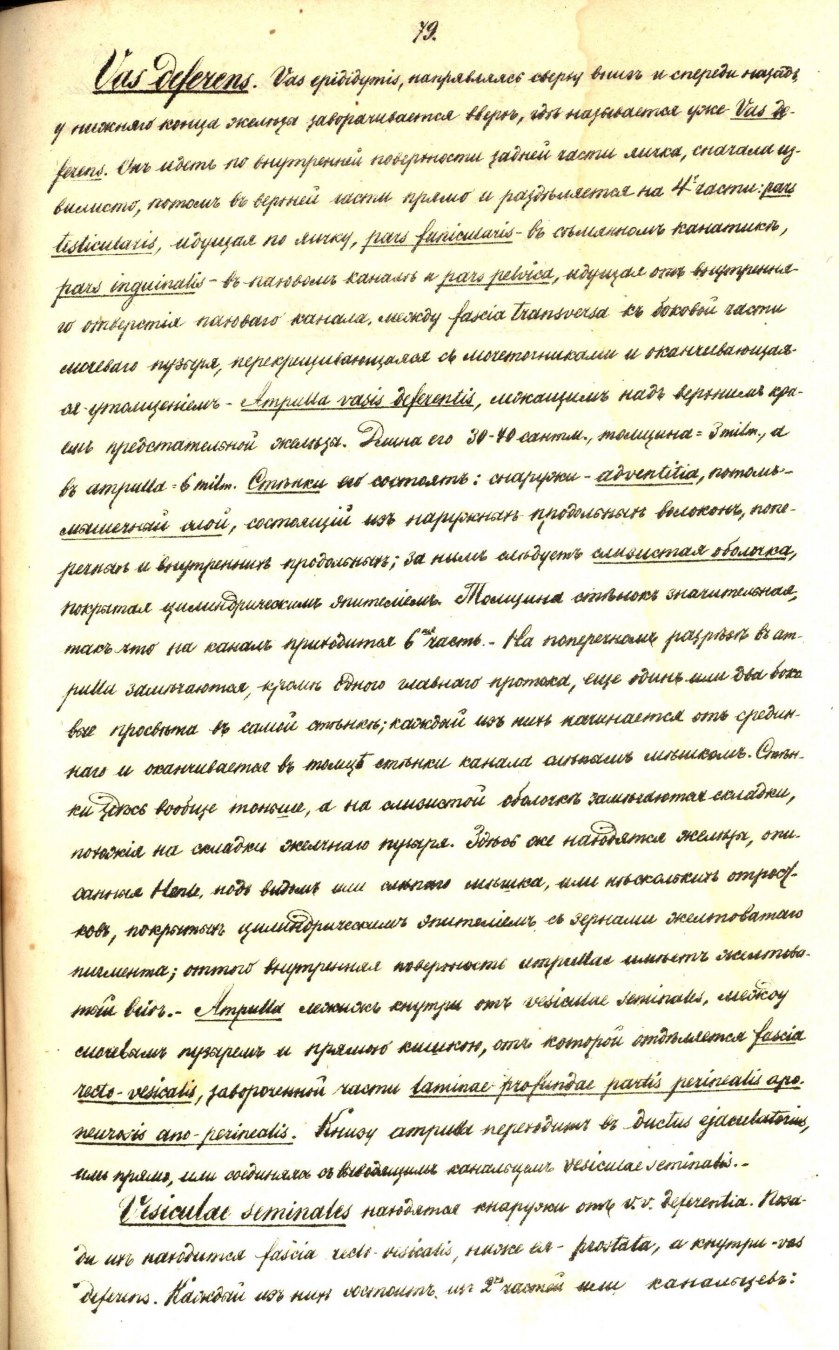 79.
Vas deferens. Vas epididymis, направляясь сверху внизъ и спереди назадъ,
у нижняго конца железа заворачивается вверхъ, гдѣ называется уже Vas de-
ferens. Онъ идетъ по внутренней поверхности задней части яичка, сначала из-
вилисто, потомъ въ верхней части прямо и раздѣляется на 4 части: pars
testicularis, идущая по яичку, pars funicularis - въ сѣмянномъ канатикѣ,
pars inguinalis - въ паховомъ каналѣ и pars pelvica, идущая отъ внутрення-
го отверстія паховаго канала, между fascia transversa къ боковой части
мочеваго пузыря, перекрещивающаяся съ мочеточниками и оканчивающая-
ся утолщеніемъ - Ampulla vasis deferentis, лежащимъ надъ верхнимъ кра-
емъ предстательной железы. Длина его 30-40 сантм., толщина = 3 milm., а
въ ampulla = 6 milm. Стѣнки его состоятъ: снаружи - adventitia, потомъ -
мышечный слой, состоящій изъ наружныхъ продольныхъ волоконъ, попе-
речныхъ и внутреннихъ продольныхъ; за нимъ слѣдуетъ слизистая оболочка,
покрытая цилиндрическимъ эпителіемъ. Толщина стѣнокъ значительная,
такъ что на каналъ приходится 6ая часть. - На поперечномъ разрѣзѣ въ am-
pulla замѣчаются, кромѣ одного главнаго протока, еще одинъ или два боко
вые просвѣта въ самой стѣнкѣ; каждый изъ нихъ начинается отъ средин-
наго и оканчивается въ толщѣ стѣнки канала слѣпымъ мѣшкомъ. Стѣн-
ки здѣсь вообще тоньше, а на слизистой оболочкѣ замѣчаются складки,
похожія на складки желчнаго пузыря. Здѣсь же находятся железы, опи-
санныя Henle, подъ видомъ или слѣпого мѣшка, или нѣсколькихъ отрост-
ковъ, покрытыхъ цилиндрическимъ эпителіемъ съ зернами желтоватаго
пигмента; оттого внутренняя поверхность ampullae имѣетъ желтова-
тый видъ. - Ampulla лежитъ кнутри отъ vesiculae seminalis, между
мочевымъ пузыремъ и прямою кишкою, отъ которой отдѣляется fascia
recto-vesicalis, завороченной части laminae profundae partis perinealis apo-
neurosis ano-perinealis. Книзу ampulla переходитъ въ ductus ejaculatorius,
или прямо, или соединяясь съ выводящимъ канальцемъ vesiculae seminalis. -
Vesiculae seminales находятся кнаружи отъ v.v. deferentia. Поза-
ди ихъ находится fascia recto-vesicalis, ниже ея - prostata, а кнутри - vas
deferens. Каждый изъ нихъ состоитъ изъ 2хъ частей или канальцевъ: